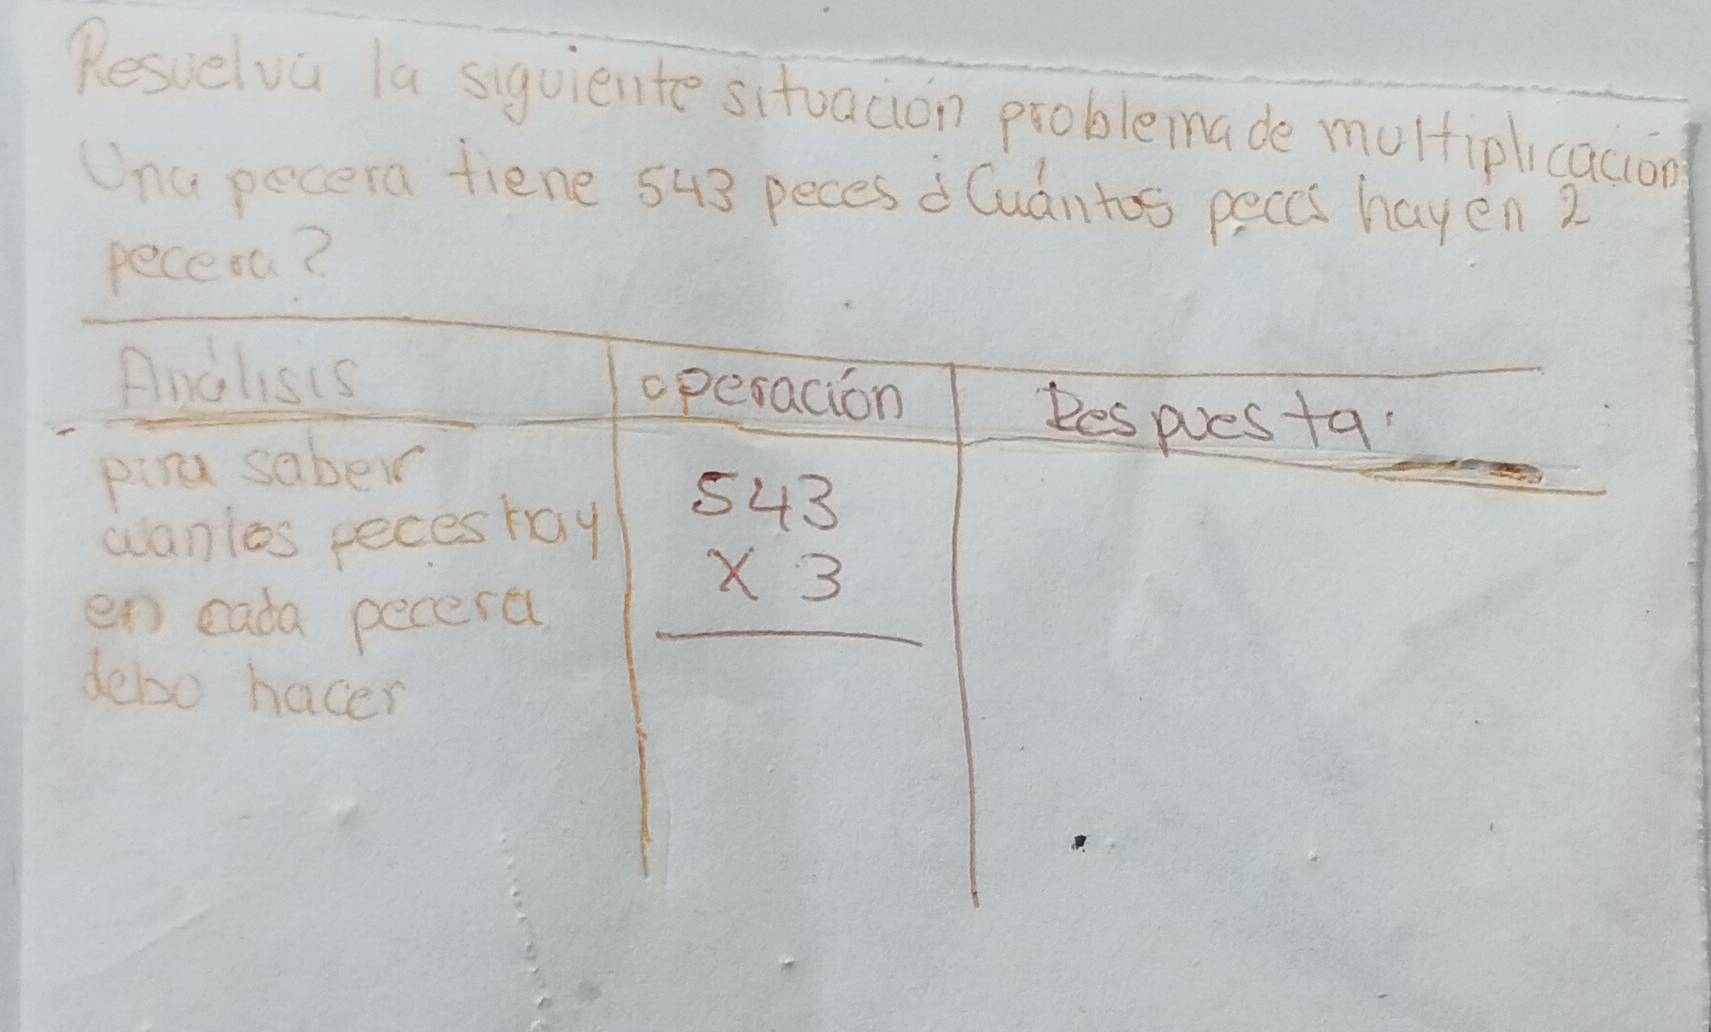 Resuelva la siguiente situación problema de multiplicación
Una pecera tiene 543 peces ¿Cuántos peces hay en 2
pecera?
Análisis
operación
Respuesta:
para saber
cuantos peces hay
en cada pecera
debo hacer
543
x 3